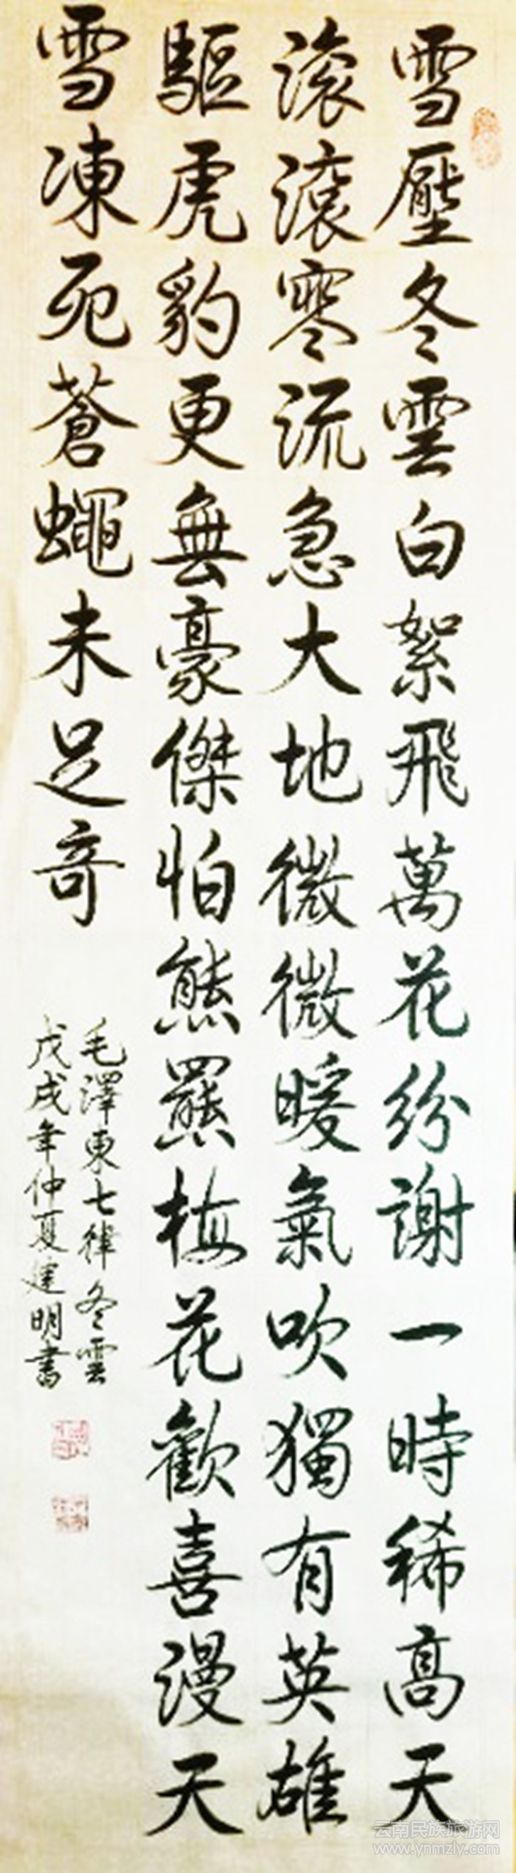 雪壓冬雲白絮飛萬花紛謝一時稀高天
滾滾寒流急大地微微暖氣吹獨有英雄
驅虎豹更無豪傑怕熊羆梅花歡喜漫天
雪凍死蒼蠅未足奇
毛澤東七律冬雲
戊戌年仲夏建明書
云南民族旅游网
www.ynmzly.com